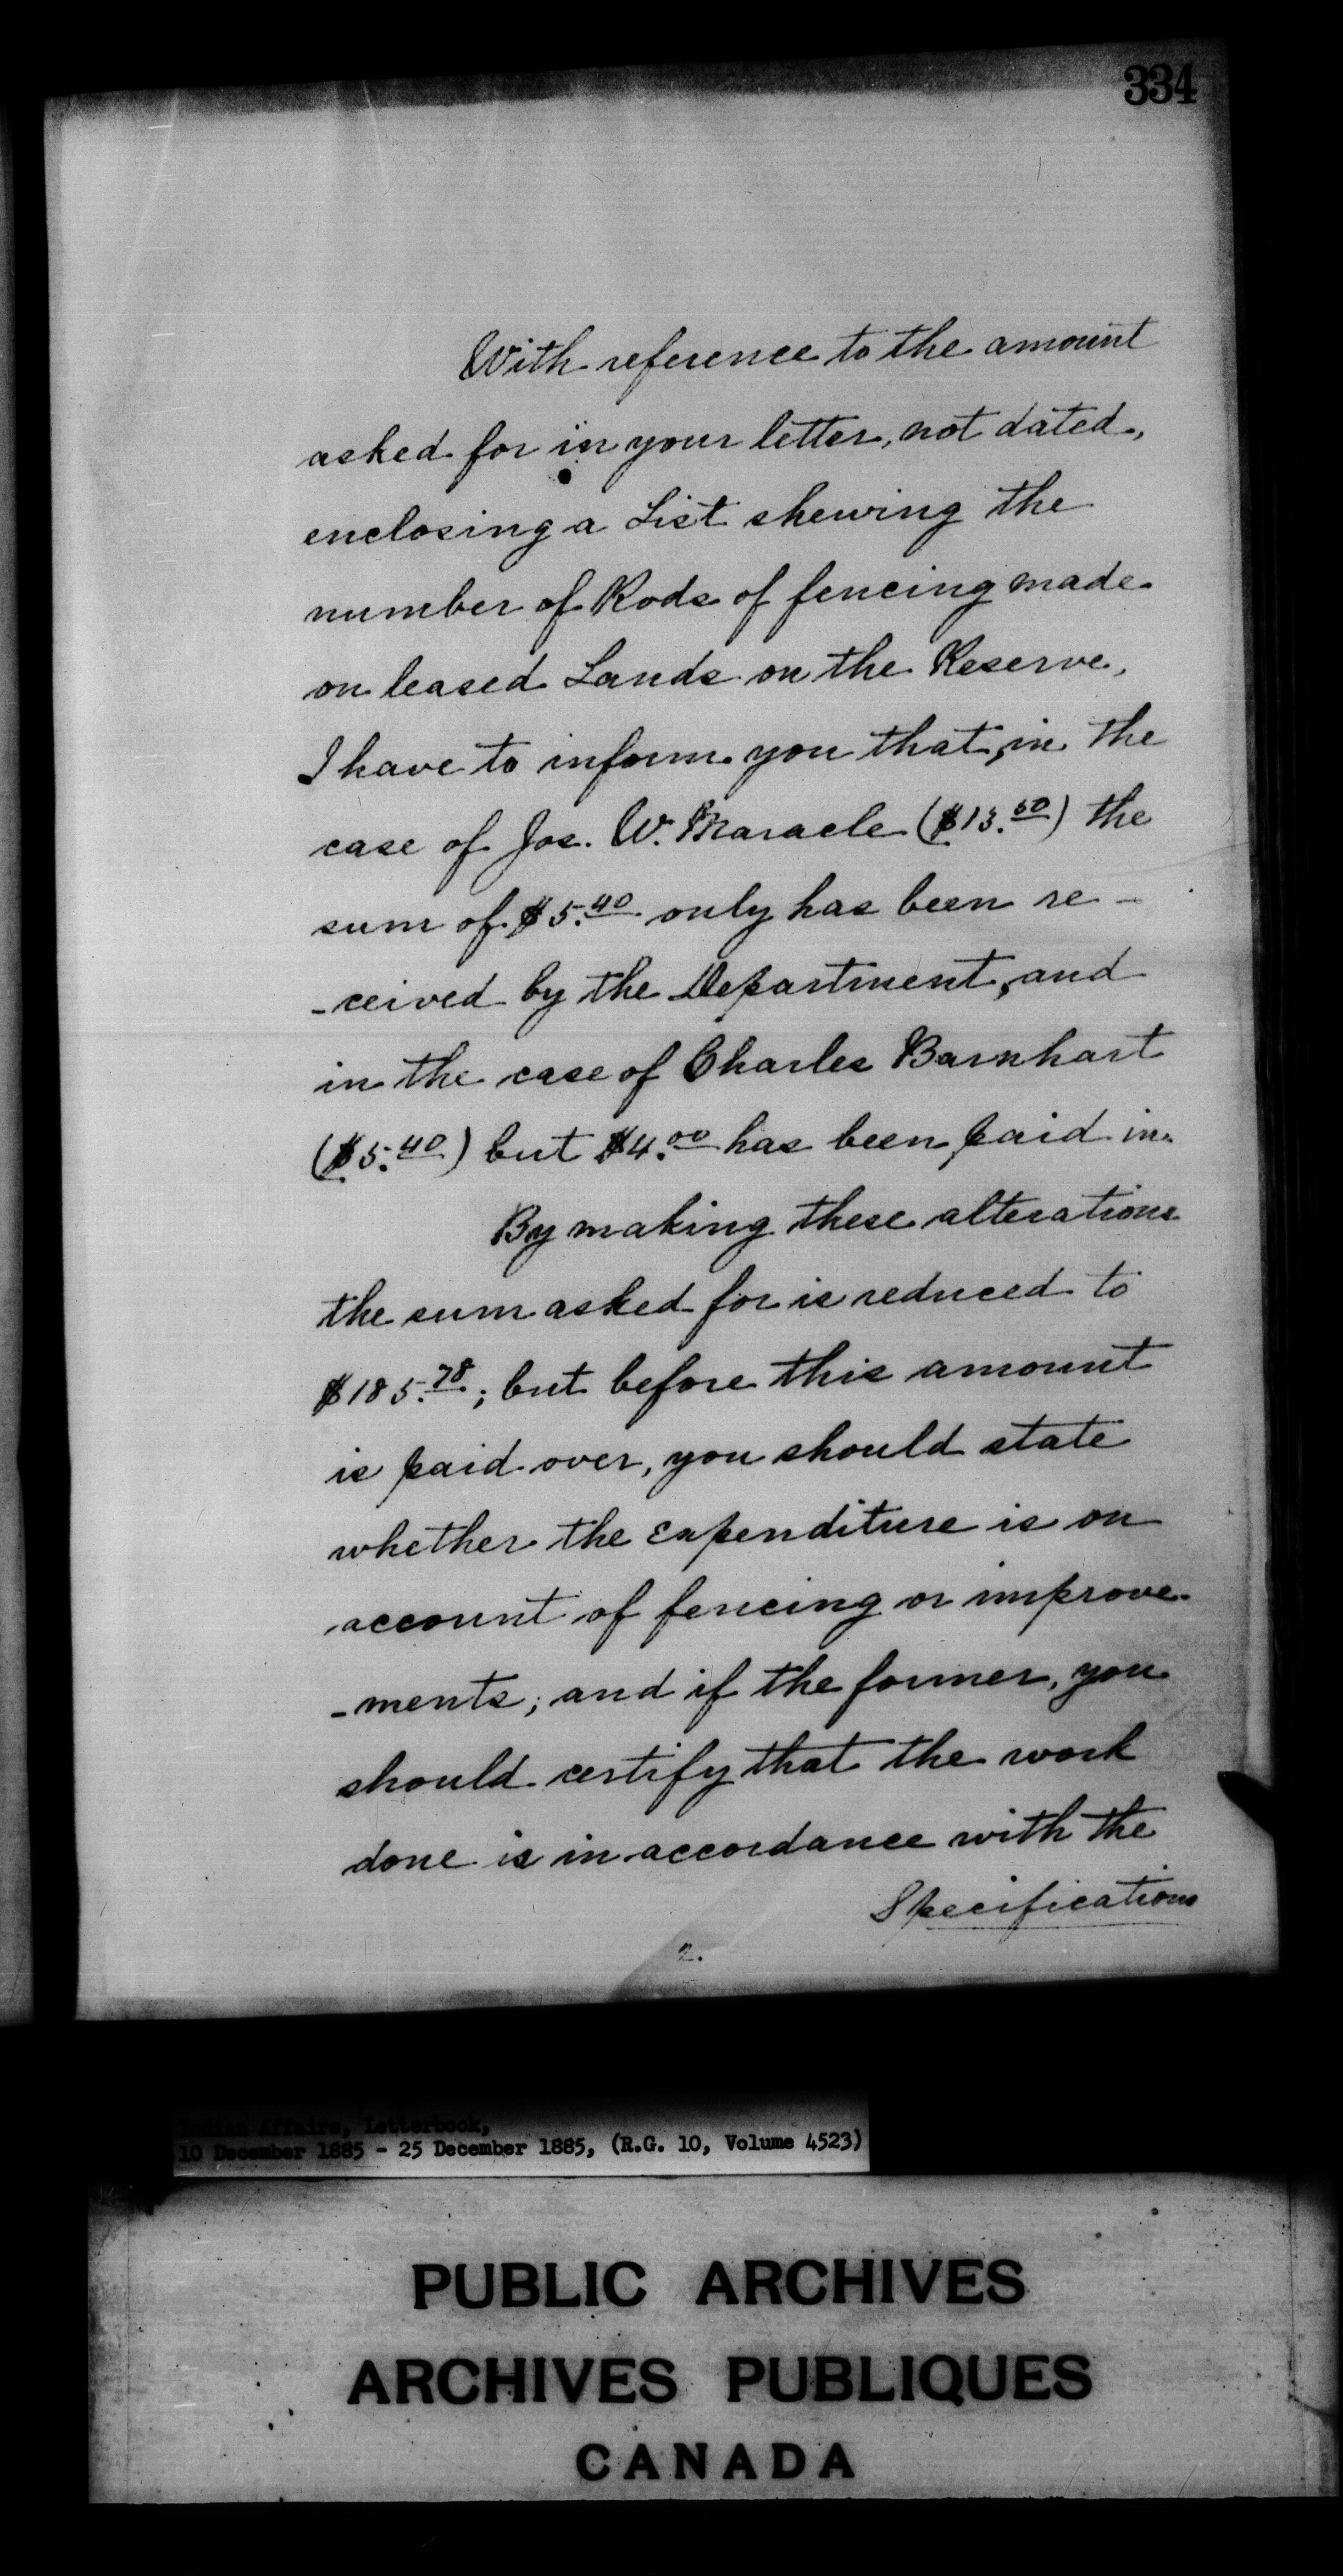 334
With reference to the amount
asked for in your letter, not dated,
enclosing a List shewing the
number of Rods of fencing made
on leased Lands on the Reserve,
I have to inform you that, in the
case of Jos. W. Maracle ($13.50) the
sum of $5.40 only has been re-
-ceived by the Department, and
in the case of Charles Barnhart
($5.40) but $4.00 has been paid in.
By making these alterations
the sum asked for is reduced to
$185.78; but before this amount
is paid over, you should state
whether the Expenditure is on
account of fencing or improve-
-ments; and if the former, you
should certify that the work
done is in accordance with the
Specifications
2.
Indian Affairs, Letterbook,
10 December 1885 - 25 December 1885, (R.G. 10, Volume 4523)
PUBLIC ARCHIVES
ARCHIVES PUBLIQUES
CANADA